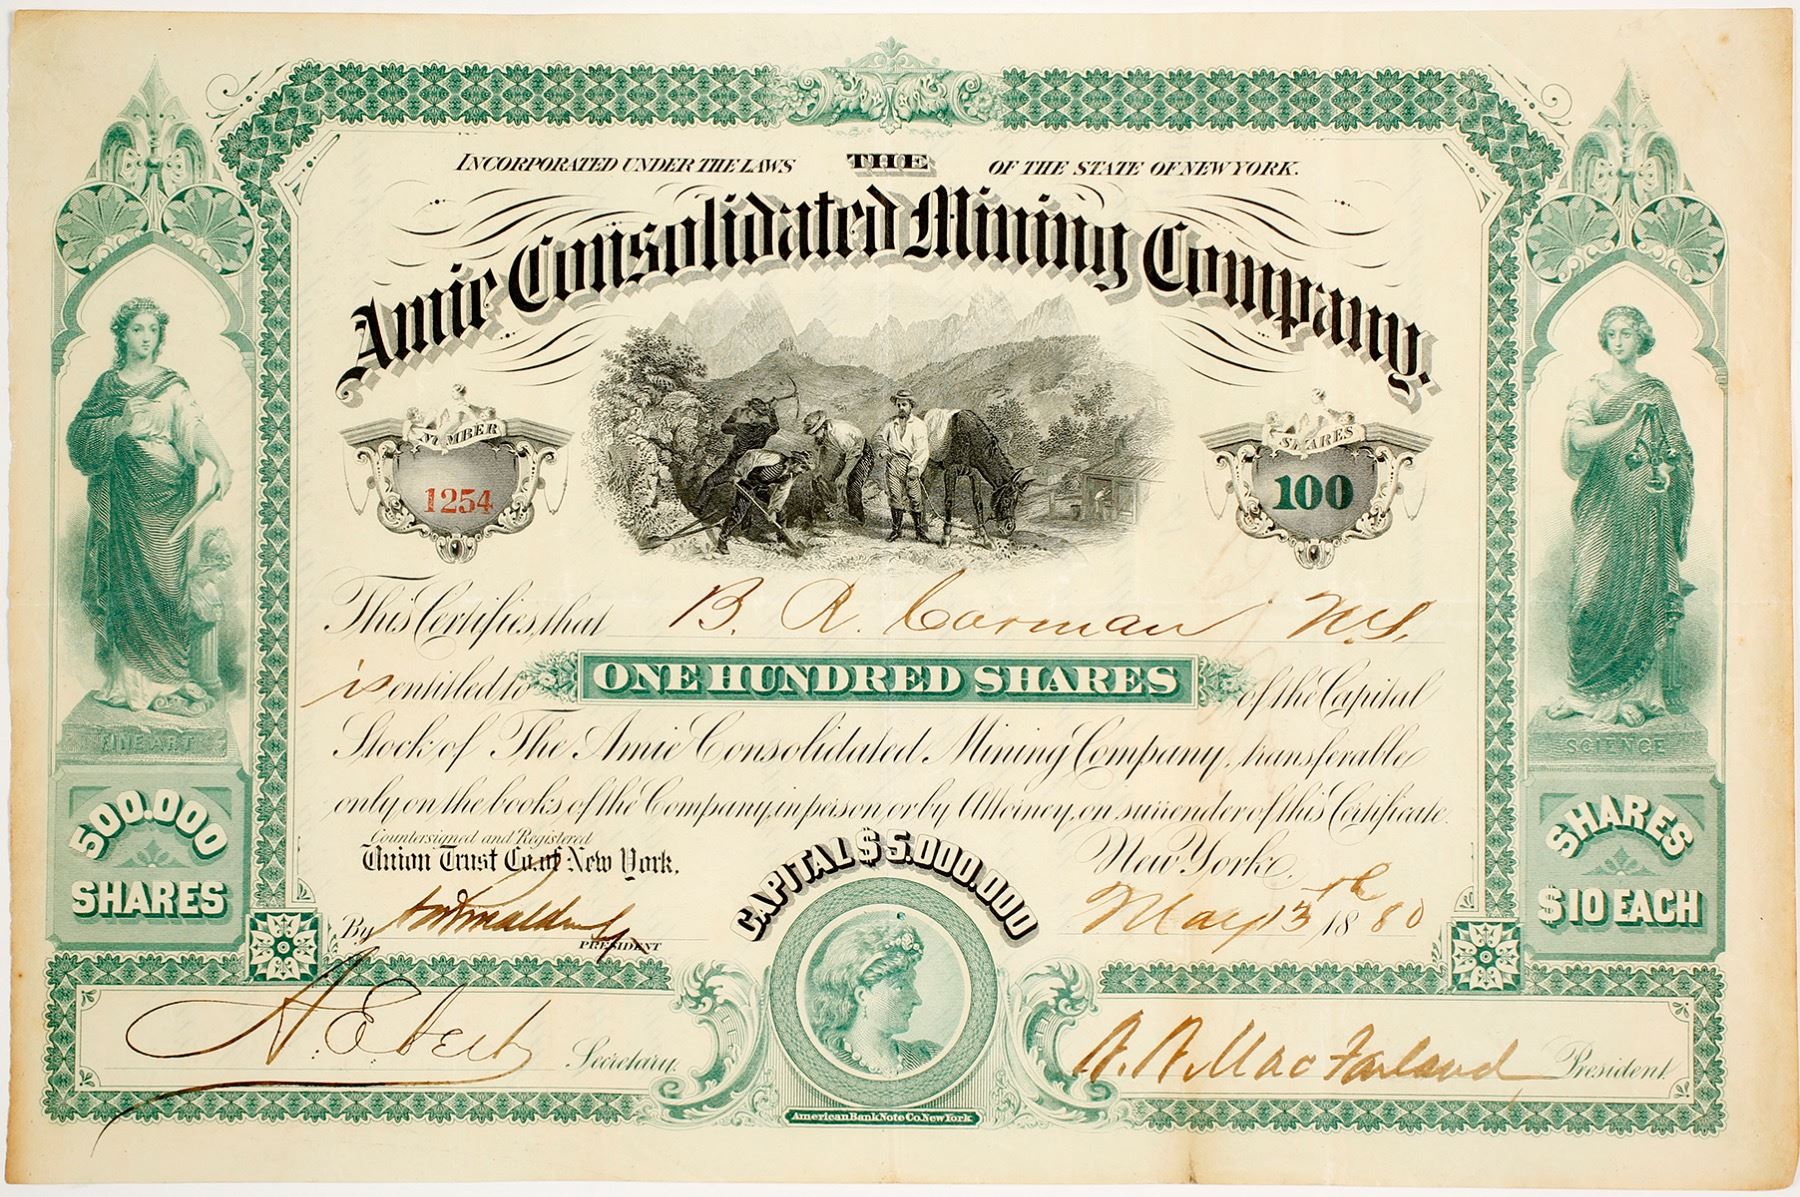 INCORPORATED UNDER THE LAWS THE OF THE STATE OF NEW YORK.
Amie Consolidated Mining Company.
NUMBER
1254
SHARES
100
This Certifies, that B. R. Corman N.Y.
is entitled to ONE HUNDRED SHARES of the Capital
Stock of The Amie Consolidated Mining Company, transferable
only on the books of the Company, in person or by Attorney, on surrender of this Certificate.
Countersigned and Registered
Union Trust Co. of New York.
By
PRESIDENT
New York,
May 13th 1880
CAPITAL $5.000.000
FINE ART
500.000
SHARES
SCIENCE
SHARES
$10 EACH
Secretary.
MacFarland President.
American Bank Note Co. New York